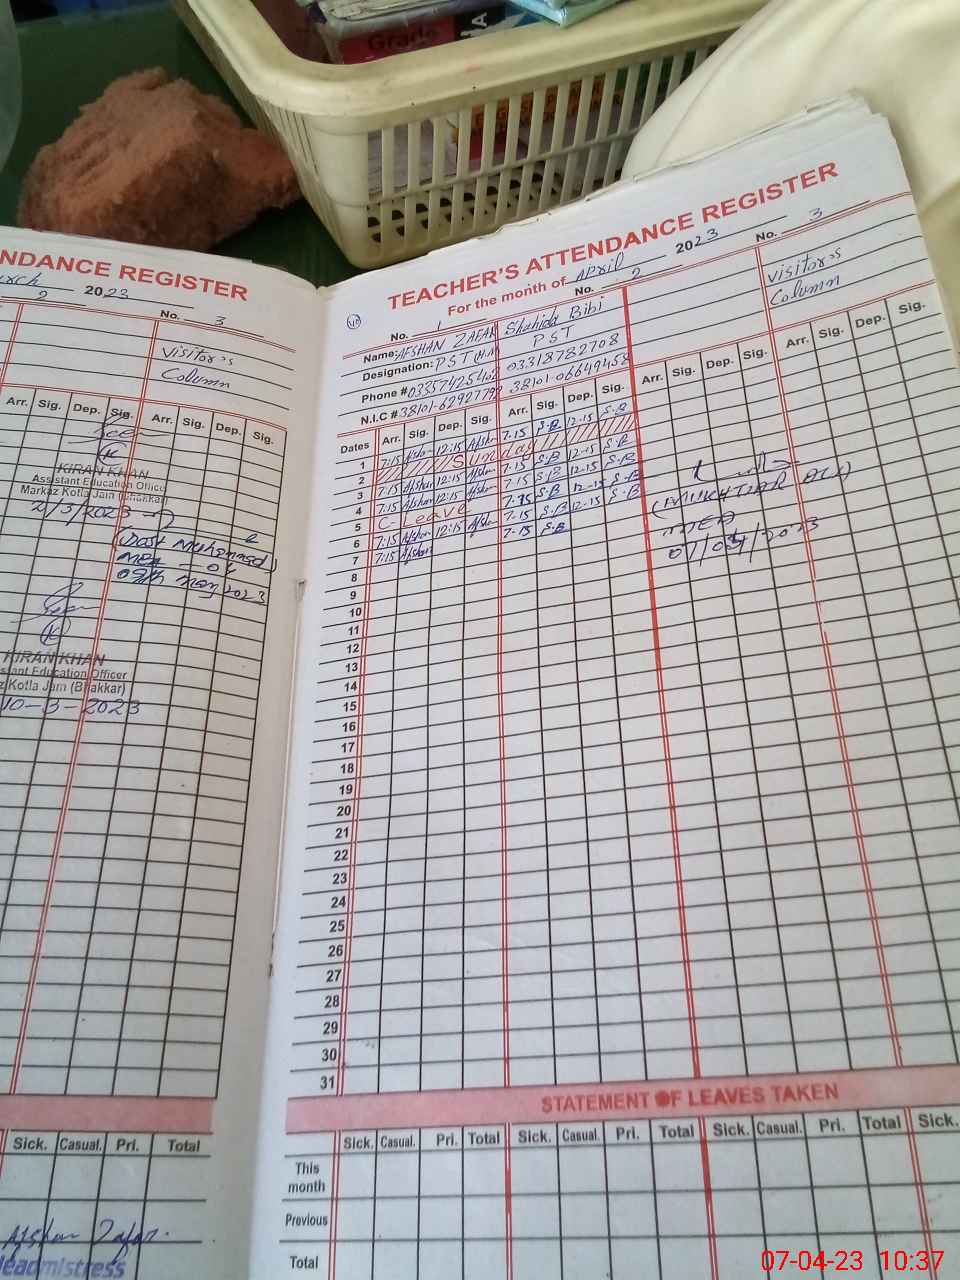 Grade
NDANCE REGISTER
2 2023
No. 3
Visitor's
Column
Arr. Sig. Dep. Sig. Arr. Sig. Dep. Sig.
Seen
KIRAN KHAN
Assistant Education Officer
Markaz Kotla Jam (Bhakkar)
2/3/2023
MEA - 04
KIRAN KHAN
stant Education Officer
z Kotla Jam (Bhakkar)
10-3-2023
Sick. Casual. Pri. Total
Afshan Zafar.
Headmistress
TEACHER'S ATTENDANCE REGISTER
For the month of April 2023
No. 1 No. 2 No. 3
Name: AFSHAN ZAFAR Shahida Bibi Visitor's
Designation: PST (H.M PST Column
Phone # 03318782708
N.I.C # 38101-06649458
Dates Arr. Sig. Dep. Sig. Arr. Sig. Dep. Sig. Arr. Sig. Dep. Sig. Arr. Sig. Dep. Sig.
1 7:15 Afshan 12:15 Afshan 7-15 S-B 12-15 S-B
2 Sunday
3 7:15 Afshan 12:15 Afshan 7-15 S-B 12-15 S-B
4 7:15 Afshan 12:15 Afshan 7-15 S-B 12-15 S-B
5 C-Leave 7-15 S-B 12-15 S-B
6 7:15 Afshan 12:15 Afshan 7-15 S-B 12-15 S-B
7 7:15 Afshan 7-15 S-B
MEA
07/04/2023
8
9
10
11
12
13
14
15
16
17
18
19
20
21
22
23
24
25
26
27
28
29
30
31
STATEMENT OF LEAVES TAKEN
Sick. Casual. Pri. Total Sick. Casual. Pri. Total Sick. Casual. Pri. Total Sick.
This month
Previous
Total
07-04-23 10:37